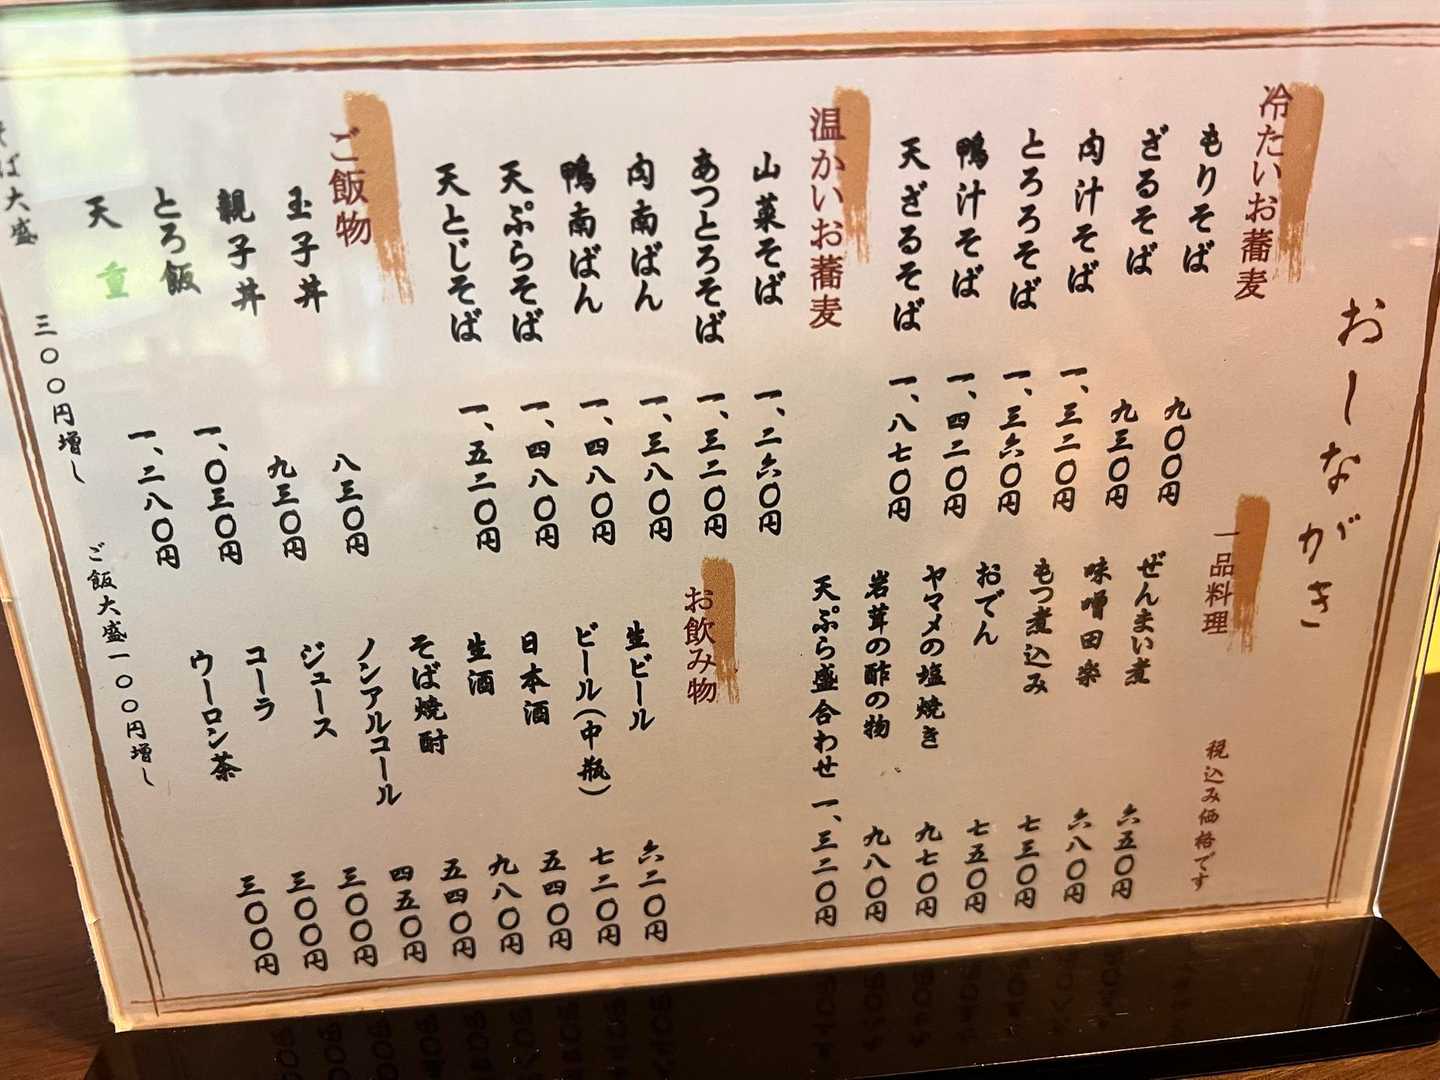 おしながき
冷たいお蕎麦
もりそば 九〇〇円
ざるそば 九三〇円
肉汁そば 一、三二〇円
とろろそば 一、三六〇円
鴨汁そば 一、四二〇円
天ざるそば 一、八七〇円
温かいお蕎麦
山菜そば 一、二六〇円
あつとろそば 一、三二〇円
肉南ばん 一、三八〇円
鴨南ばん 一、四八〇円
天ぷらそば 一、四八〇円
天とじそば 一、五二〇円
ご飯物
玉子丼 八三〇円
親子丼 九三〇円
とろ飯 一、〇三〇円
天重 一、二八〇円
そば大盛 三〇〇円増し
ご飯大盛一〇〇円増し
一品料理
税込み価格です
ぜんまい煮 六五〇円
味噌田楽 六八〇円
もつ煮込み 七三〇円
おでん 七五〇円
ヤマメの塩焼き 九七〇円
岩茸の酢の物 九八〇円
天ぷら盛合わせ 一、三二〇円
お飲み物
生ビール 六二〇円
ビール(中瓶) 七二〇円
日本酒 五四〇円
生酒 九八〇円
そば焼酎 五四〇円
ノンアルコール 四五〇円
ジュース 三〇〇円
コーラ 三〇〇円
ウーロン茶 三〇〇円